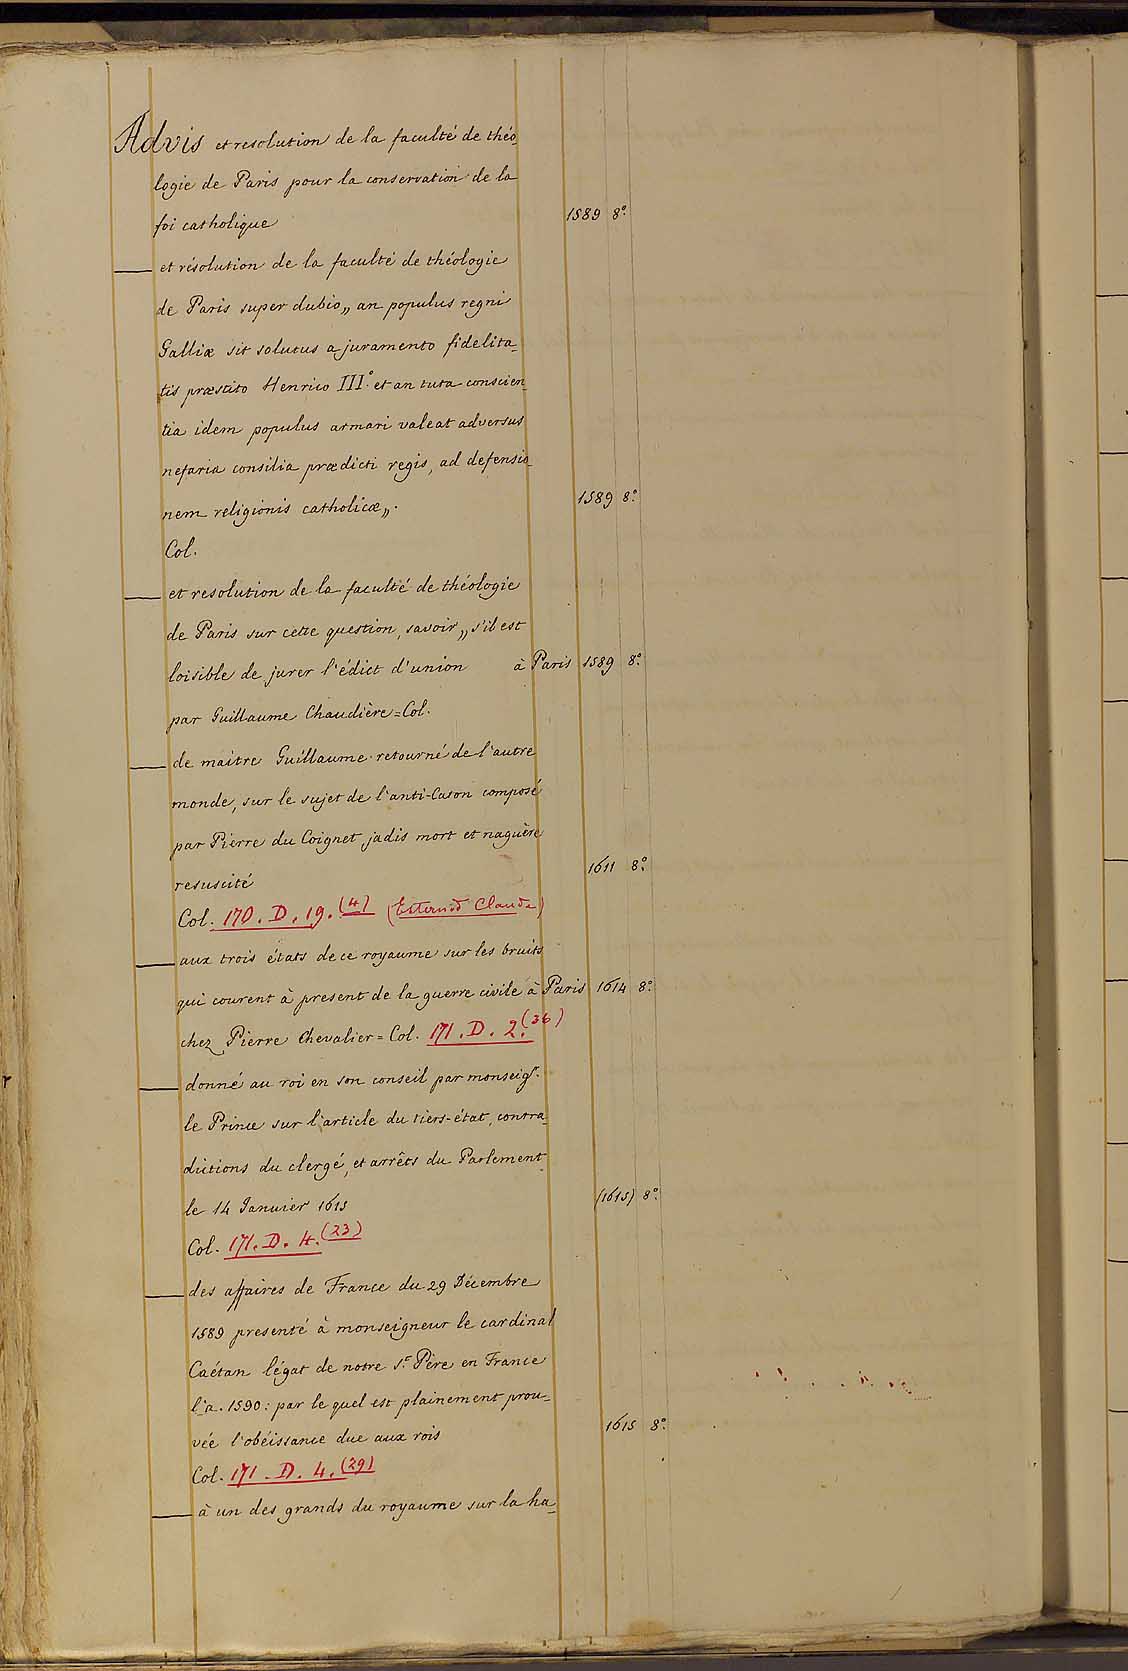 Advis et resolution de la faculté de théo_
logie de Paris pour la conservation de la
foi catholique 1589 8°.
___ et résolution de la faculté de théologie
de Paris super dubio„ an populus regni
Galliæ sit solutus a juramento fidelita_
tis præstito Henrico III° et an tuta conscien_
tia idem populus armari valeat adversus
nefaria consilia prædicti regis, ad defensio_
nem religionis catholicæ„. 1589 8°.
Col.
___ et resolution de la faculté de théologie
de Paris sur cette question, savoir„ s'il est
loisible de jurer l'édict d'union à Paris 1589 8°.
par Guillaume Chaudière = Col.
___ de maitre Guillaume retourné de l'autre
monde, sur le sujet de l'anti-Coton composé
par Pierre du Coignet jadis mort et naguère
resuscité 1611 8°.
Col. 170. D. 19. (4) (Esternod Claude)
___ aux trois états de ce royaume sur les bruits
qui courent à present de la guerre civile à Paris 1614 8°.
chez Pierre Chevalier = Col. 171. D. 2. (36)
___ donné au roi en son conseil par monseigr.
le Prince sur l'article du tiers-état, contra_
dictions du clergé, et arrêts du Parlement
le 14 Janvier 1615 (1615) 8°.
Col. 171. D. 4. (23)
___ des affaires de France du 29 Décembre
1589 presenté à monseigneur le cardinal
Caétan légat de notre St. Père en France
l'a. 1590: par le quel est plainement prou_
vée l'obéissance due aux rois 1615 8°.
Col. 171. D. 4. (29)
___ à un des grands du royaume sur la ha_